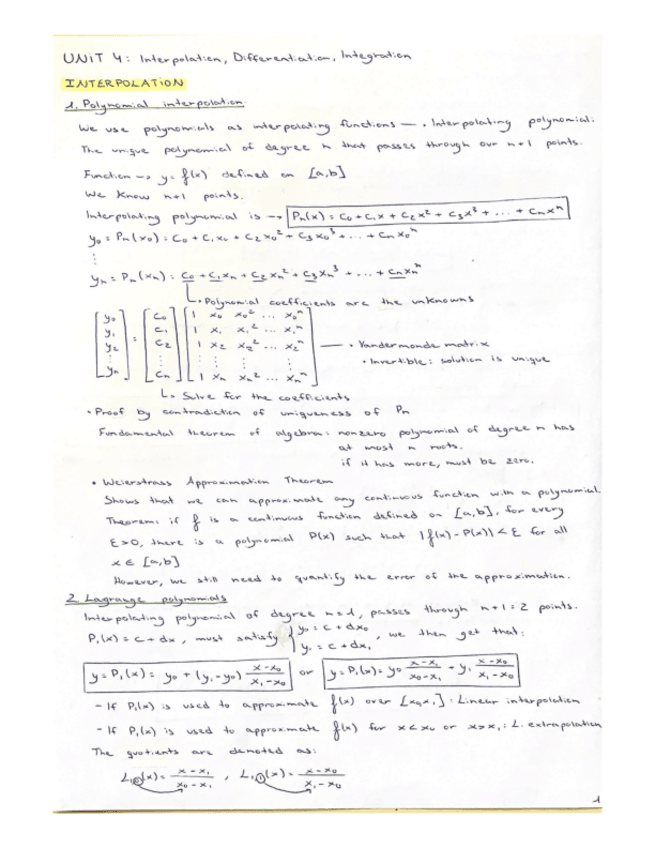 UNIT 4: Interpolation, Differentiation, Integration
INTERPOLATION
1. Polynomial interpolation.
We use polynomials as interpolating functions — • Interpolating polynomial:
The unique polynomial of degree n that passes through our n+1 points.
Function → y = f(x) defined on [a,b]
We know n+1 points.
Interpolating polynomial is → Pn(x) = c0 + c1x + c2x² + c3x³ + ... + cnxⁿ
y0 = Pn(x0) = c0 + c1x0 + c2x0² + c3x0³ + ... + cnx0ⁿ
⋮
yn = Pn(xn) = c0 + c1xn + c2xn² + c3xn³ + ... + cnxnⁿ
↳ Polynomial coefficients are the unknowns
[y0] = [c0] [1 x0 x0² ... x0ⁿ]
[y1] [c1] [1 x1 x1² ... x1ⁿ]
[y2] [c2] [1 x2 x2² ... x2ⁿ] — • Vandermonde matrix
[⋮] [⋮] [⋮ ⋮ ⋮ ⋮] • Invertible: solution is unique
[yn] [cn] [1 xn xn² ... xnⁿ]
↳ Solve for the coefficients
• Proof by contradiction of uniqueness of Pn
Fundamental theorem of algebra: nonzero polynomial of degree n has
at most n roots.
if it has more, must be zero.
• Weierstrass Approximation Theorem
Shows that we can approximate any continuous function with a polynomial.
Theorem: if f is a continuous function defined on [a,b], for every
ε>0, there is a polynomial P(x) such that |f(x) - P(x)| < ε for all
x ∈ [a,b]
However, we still need to quantify the error of the approximation.
2. Lagrange polynomials
Interpolating polynomial of degree n=1, passes through n+1=2 points.
P1(x) = c + dx, must satisfy { y0 = c + dx0, y1 = c + dx1 , we then get that:
y = P1(x) = y0 + (y1 - y0) (x - x0)/(x1 - x0) or y = P1(x) = y0 (x - x1)/(x0 - x1) + y1 (x - x0)/(x1 - x0)
- If P1(x) is used to approximate f(x) over [x0, x1] : Linear interpolation
- If P1(x) is used to approximate f(x) for x < x0 or x > x1 : L. extrapolation
The quotients are denoted as:
L1,0(x) = (x - x1)/(x0 - x1) , L1,1(x) = (x - x0)/(x1 - x0)
1